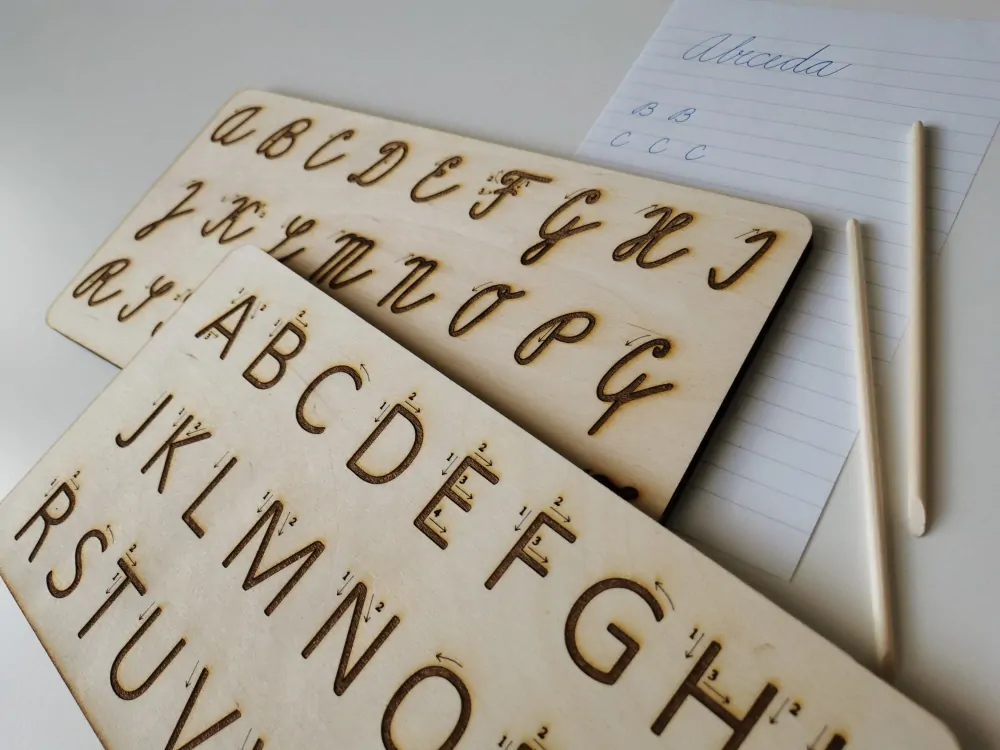 Abeceda
B B
C C C
A B C D E F G H I
J K L M N O P Q
R S
A B C D E F G H
J K L M N O
R S T U V